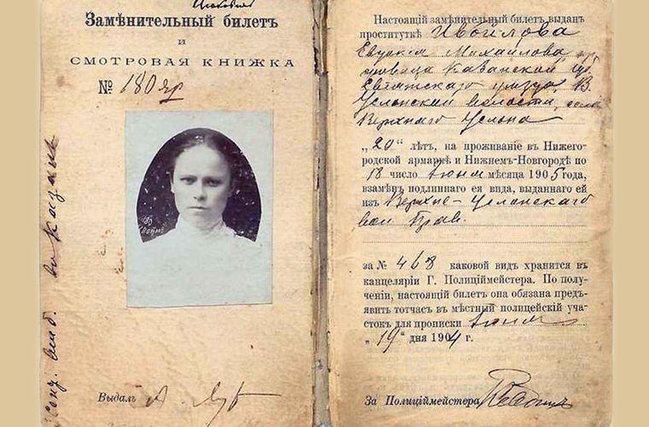 Замѣнительный билетъ
и
СМОТРОВАЯ КНИЖКА
№ 180 яр
Выдалъ
Настоящій замѣнительный билетъ выданъ
проституткѣ Ивойлова
Евдокія Михайлова
Казанской
уѣзда, В.
Услонской волости, села
Верхняго Услона
„20“ лѣтъ, на проживаніе въ Нижего-
родской ярмаркѣ и Нижнемъ-Новгородѣ по
18 число Іюня мѣсяца 1905 года,
взамѣнъ подлиннаго ея вида, выданнаго ей
изъ Верхне-Услонскаго
вол. Прав.
за № 468 каковой видъ хранится въ
канцеляріи Г. Полиціймейстера. По полу-
ченіи, настоящій билетъ она обязана предъ-
явить тотчасъ въ мѣстный полицейскій уча-
стокъ для прописки Іюня
„19“ дня 1904 г.
За Полиціймейстера